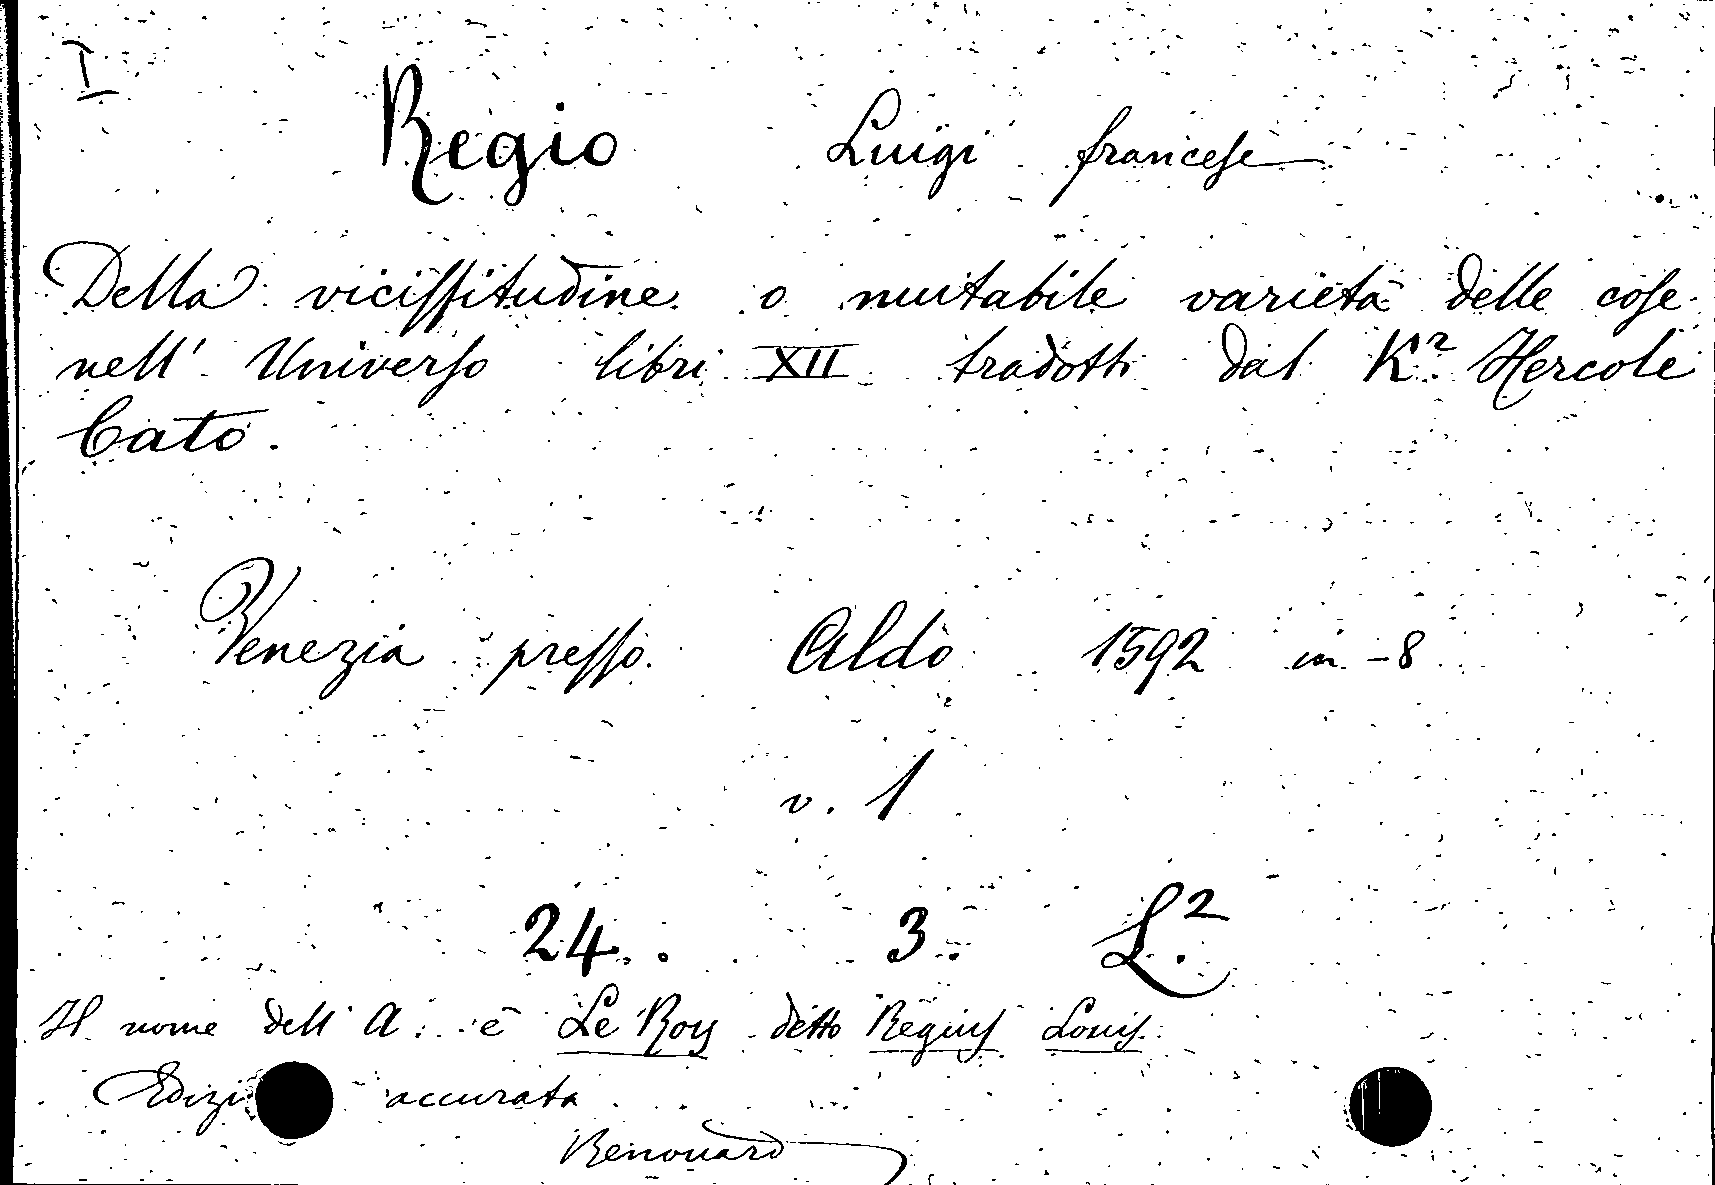 I
Regio Luigi francese
Della vicissitudine o mutabile varietà delle cose
nell' Universo libri XII tradotti dal K.r Hercole
Cato.
Venezia presso Aldo 1592 in-8
v. 1
24. 3. L.2
Il nome dell' A. è Le Roy detto Regius Louis.
accurata
Renouard